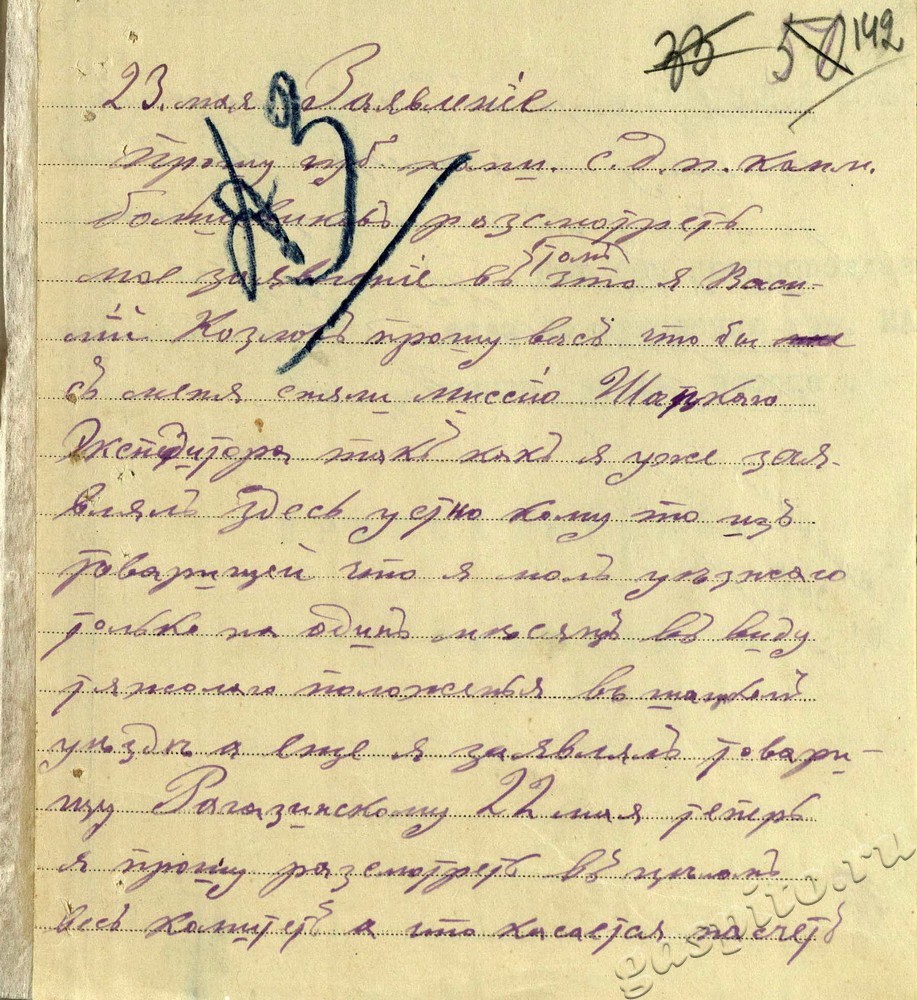 35 50 142
23. мая Заявление
Прошу губ. ком. с.д.п. комм.
большевиковъ розсмотреть
мое заявление въ томъ что я Васи-
лий Козловъ прошу васъ что бы
съ меня сняли миссию Шацкаго
Экспедитора такъ какъ я уже зая-
влялъ здесь устно кому то изъ
товарищей что я молъ уезжаю
только на одинъ месяцъ въ виду
тяжолаго положенья въ шацкомъ
уезде а еще я заявлялъ товари-
щу Рагазинскому 22 мая теперь
я прошу розсмотреть въ целомъ
весь комитетъ а что касается насчетъ
gaspito.ru